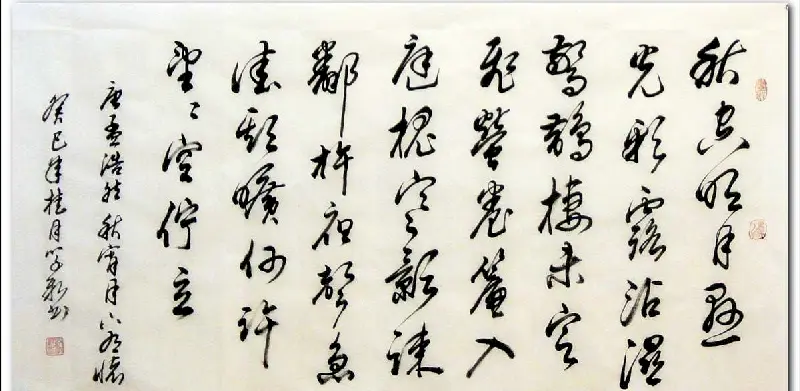 秋空明月懸
光彩露沾濕
驚鵲棲未定
飛螢卷簾入
庭槐寒影疎
鄰杵夜聲急
佳期曠何許
望〻空佇立
唐孟浩然秋宵月下有懷
癸巳年桂月書